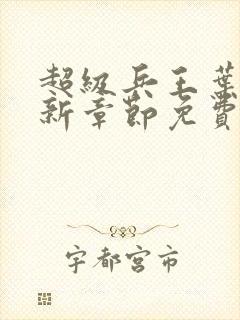 超级兵王葉
新章節免費
宇都宮市